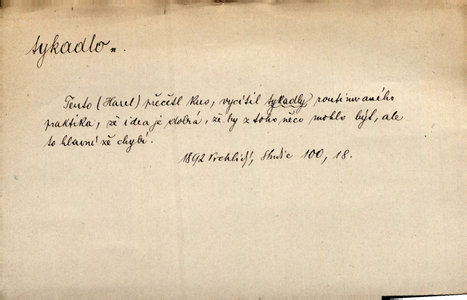 tykadlo n.
Tento (Harel) přečetl kus, vycítil tykadly routinovaného
praktika, že idea je dobrá, že by z toho něco mohlo být, ale
to hlavní že chybí.
1892 Vrchlický, Studie 100, 18.